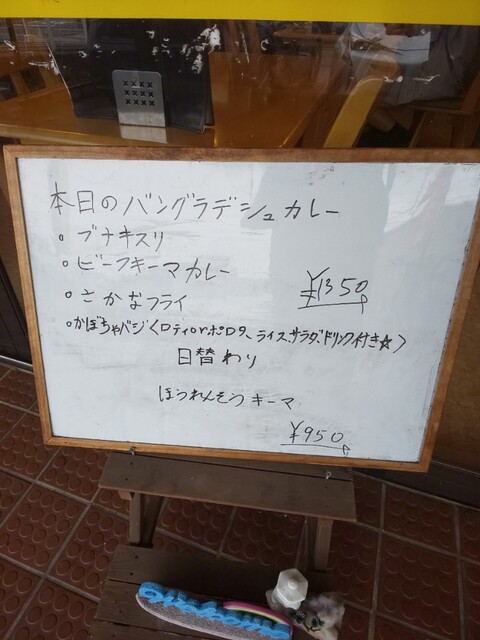 本日のバングラデシュカレー
・ブナキスリ
・ビーフキーマカレー
・さかなフライ ¥1350
・かぼちゃバジ〈ロティorポロタ、ライス、サラダ、ドリンク付き☆〉
日替わり
ほうれんそうキーマ
¥950